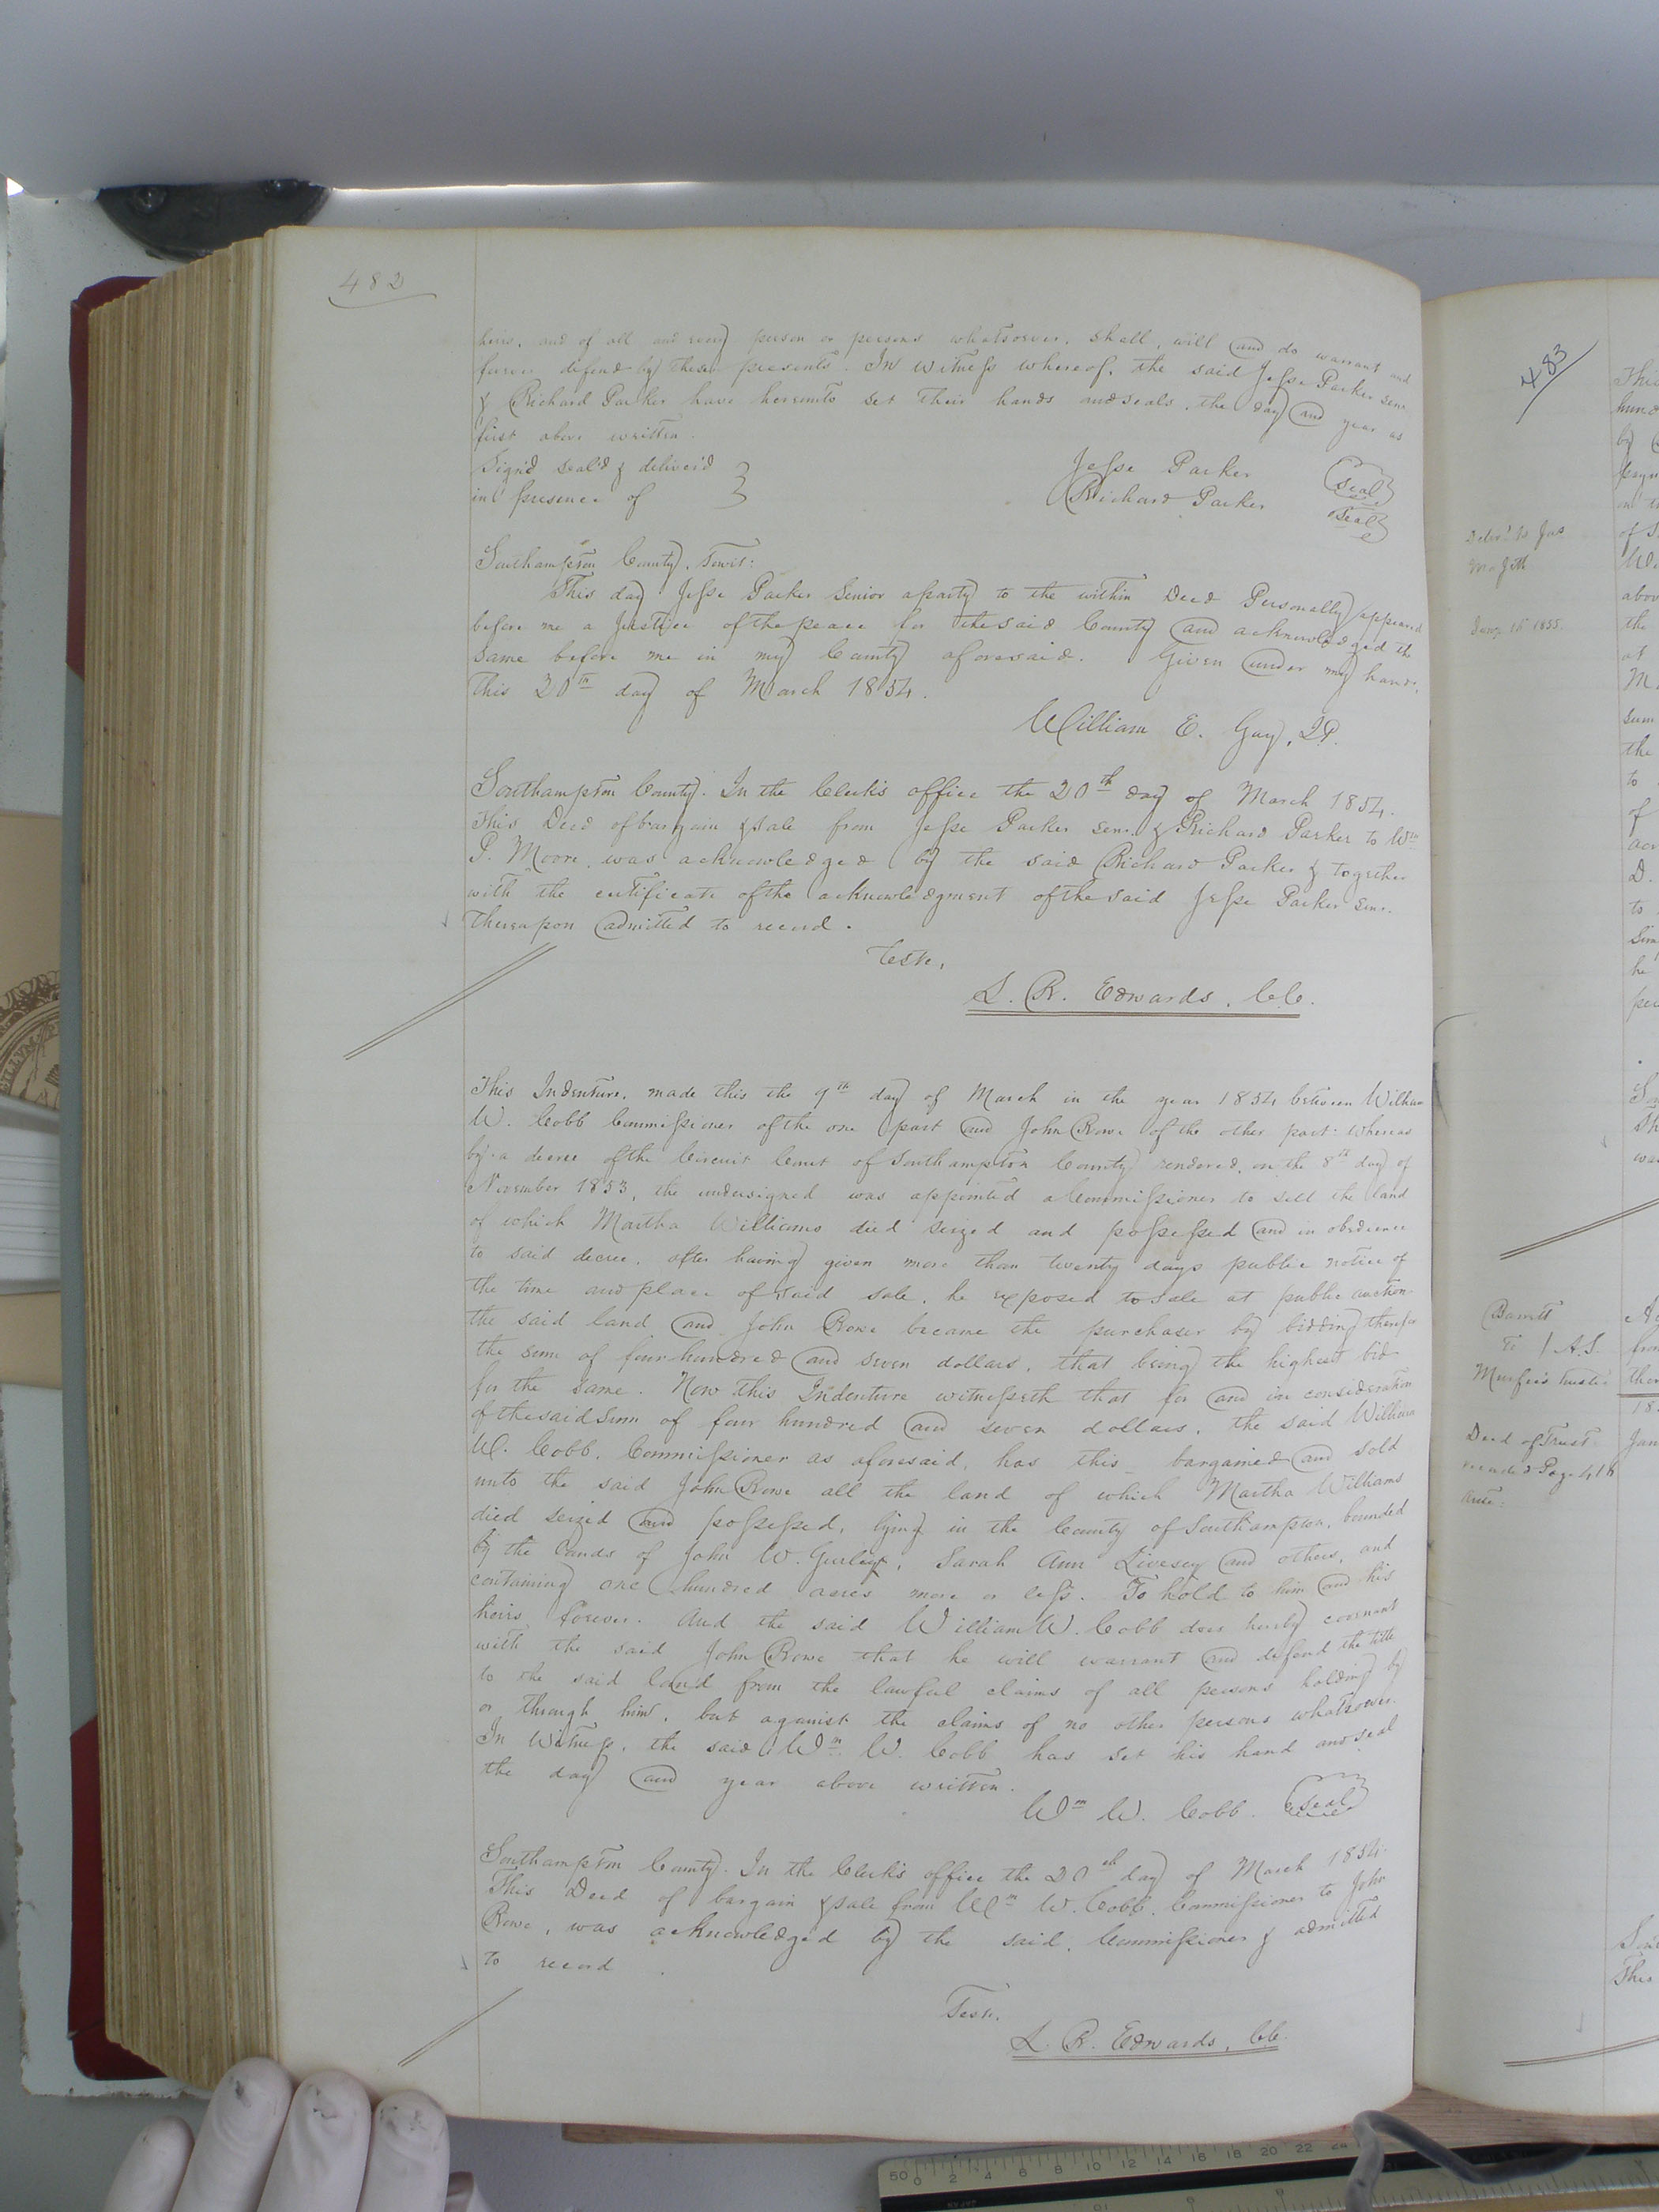 482
heirs, and of all and every person or persons whatsoever, shall, will and do warrant and
forever defend by these presents. In witness whereof, the said Jesse Parker senr
& Richard Parker have hereunto set their hands and seals, the day and year as
first above written.
Sign'd seal'd & deliver'd
in presence of
Jesse Parker seal
Richard Parker seal
Southampton County, towit:
This day Jesse Parker Senior a party to the within Deed Personally appeared
before me a Justice of the peace for the said County and acknowledged the
same before me in my County aforesaid. Given under my hand,
this 20th day of March 1854.
William E. Guy, J.P.
Southampton County. In the Clerk's office the 20th day of March 1854.
This Deed of bargain & sale from Jesse Parker senr. & Richard Parker to Wm
P. Moore, was acknowledged by the said Richard Parker & together
with the certificate of the acknowledgment of the said Jesse Parker senr.
thereupon admitted to record.
Teste,
L. R. Edwards, C.C.
This Indenture, made this the 9th day of March in the year 1854 between William
W. Cobb Commissioner of the one part and John Rowe of the other part: Whereas
by a decree of the Circuit Court of Southampton County rendered, on the 8th day of
November 1853, the undersigned was appointed a Commissioner to sell the land
of which Martha Williams died seized and possessed and in obedience
to said decree, after having given more than twenty days public notice of
the time and place of said sale, he exposed to sale at public auction
the said land and John Rowe became the purchaser by bidding therefor
the sum of four hundred and seven dollars, that being the highest bid
for the same. Now this Indenture witnesseth that for and in consideration
of the said Sum of four hundred and seven dollars, the said William
W. Cobb, Commissioner as aforesaid, has this bargained and sold
unto the said John Rowe all the land of which Martha Williams
died seized and possessed, lying in the County of Southampton, bounded
by the lands of John W. Gurley, Sarah Ann Livesey and others, and
containing one hundred acres more or less. To hold to him and his
heirs forever. And the said William W. Cobb does hereby covenant
with the said John Rowe that he will warrant and defend the title
to the said land from the lawful claims of all persons holding by
or through him, but against the claims of no other persons whatsoever.
In Witness, the said Wm W. Cobb has set his hand and seal
the day and year above written.
Wm W. Cobb. seal
Southampton County. In the Clerk's office the 20th day of March 1854.
This Deed of bargain & sale from Wm W. Cobb, Commissioner to John
Rowe, was acknowledged by the said Commissioner & admitted
to record.
Teste,
L. R. Edwards, C.C.
483
Jany 1st 1855.
Barrett
To A.S.
Deed of Trust
Page 418
ante: